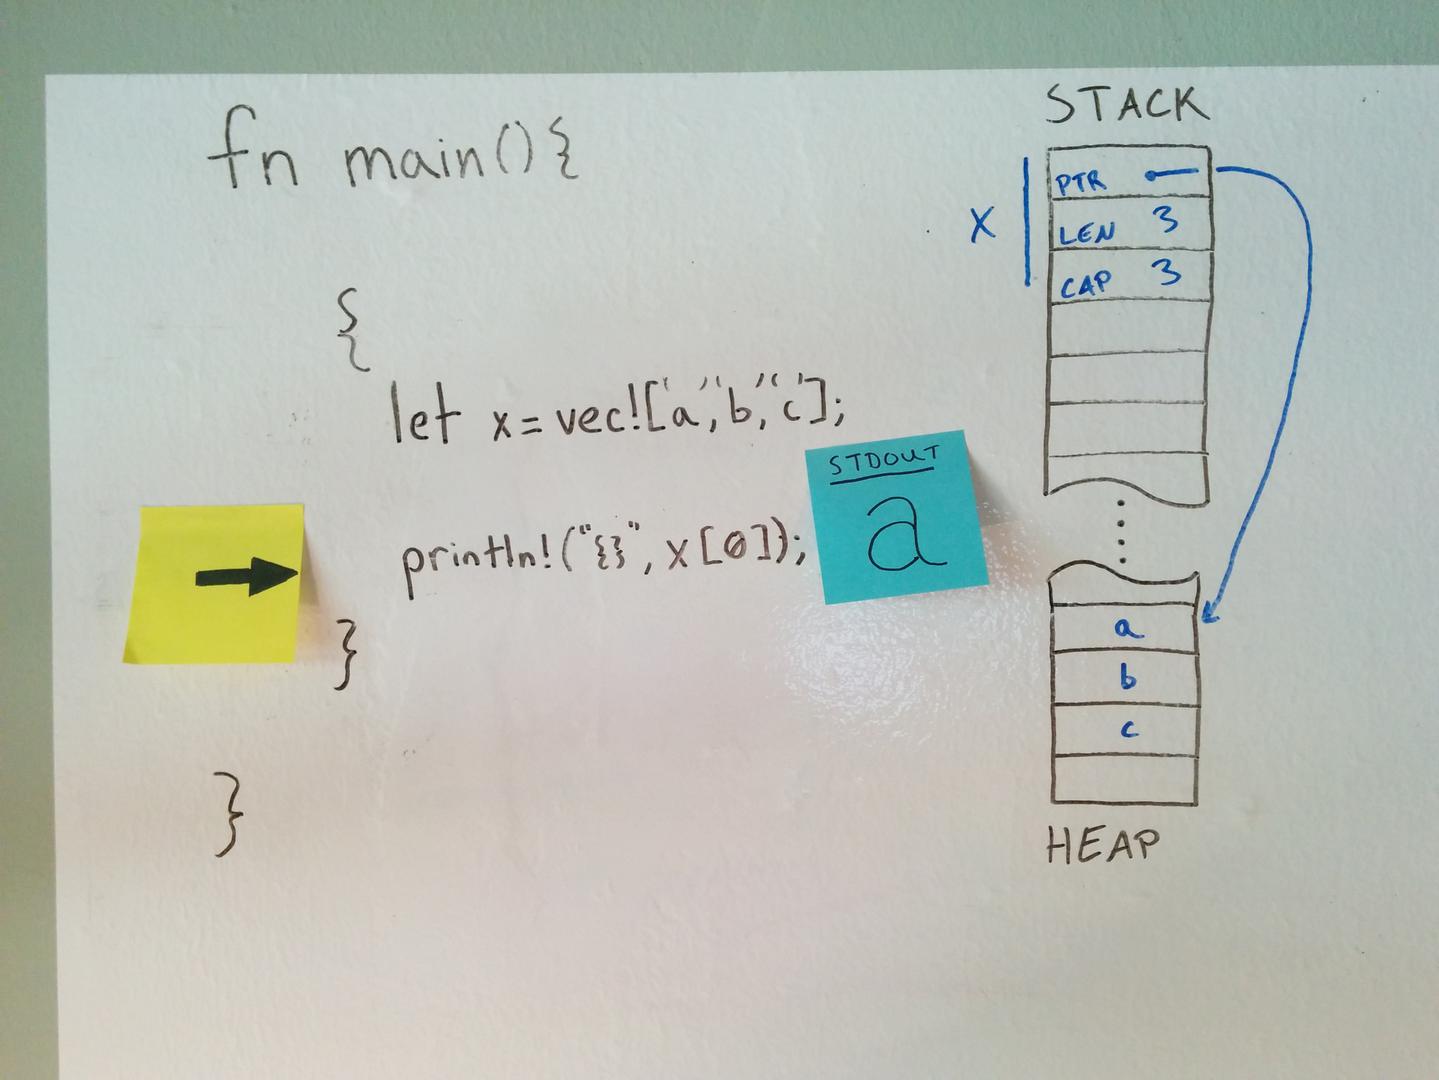 fn main(){
{
let x=vec!['a','b','c'];
println!("{}", x[0]);
}
}
STDOUT
a
STACK
x
PTR
LEN 3
CAP 3
a
b
c
HEAP